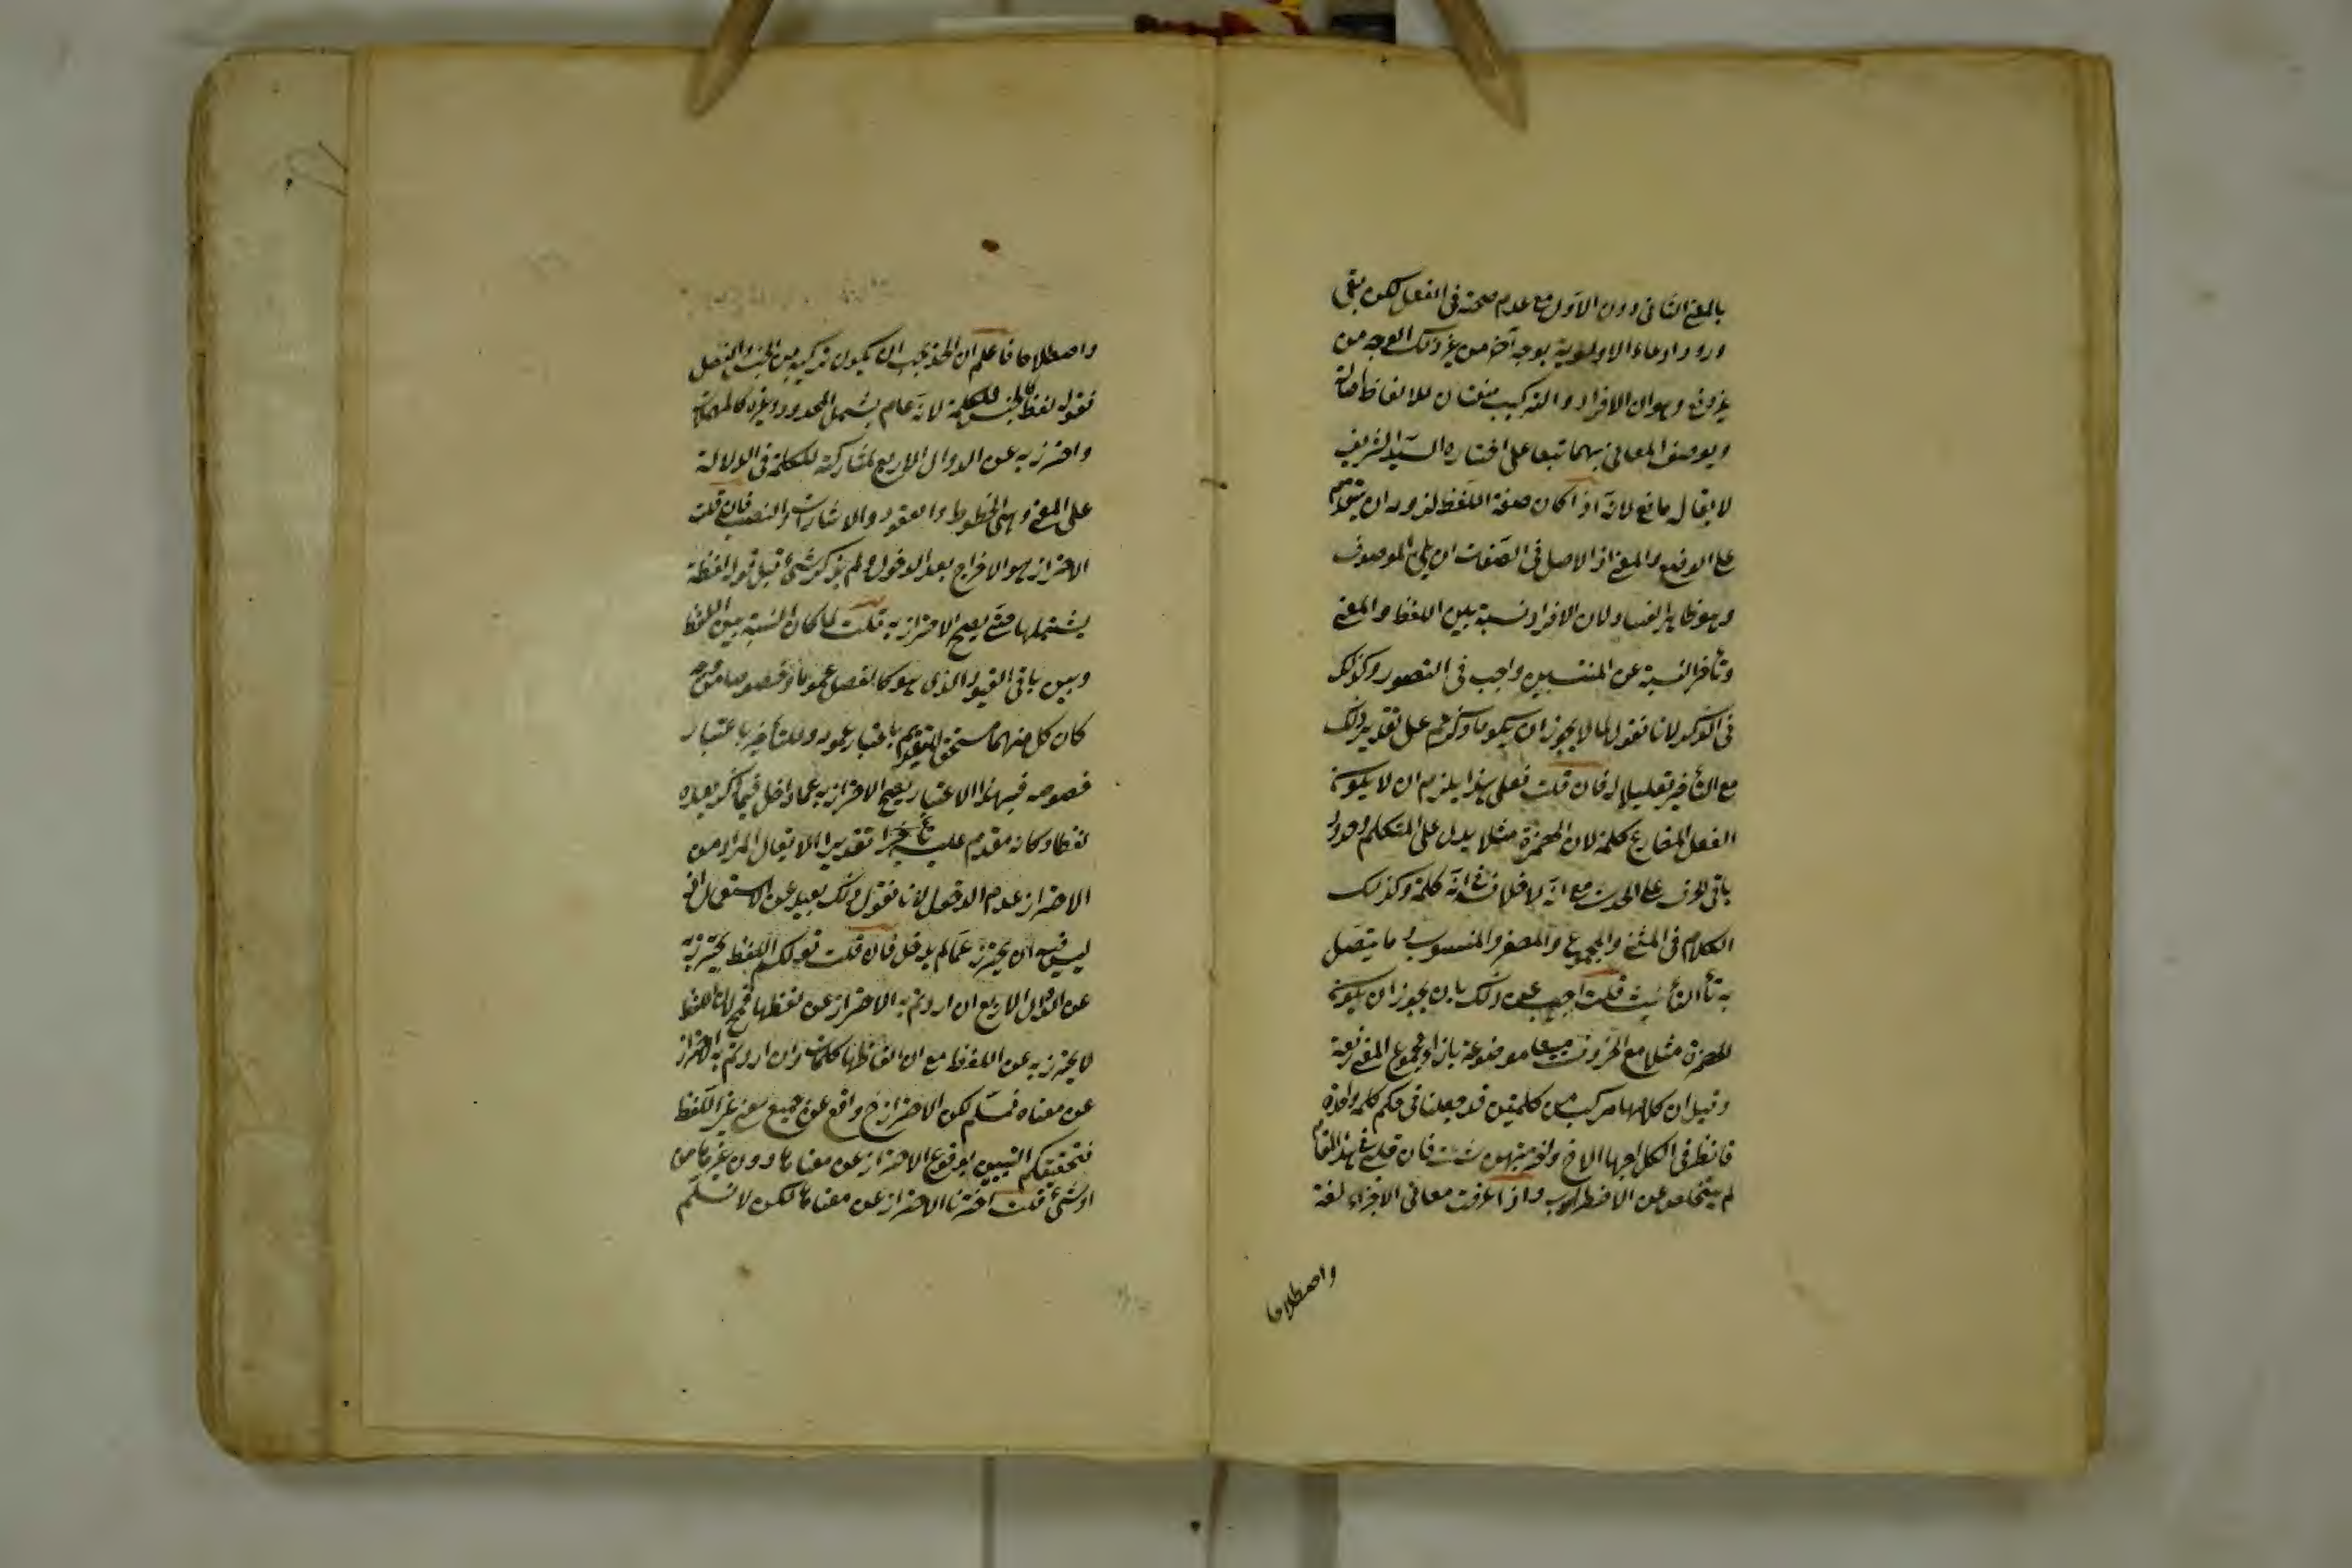 بالمعنى الثاني دون الأول مع عدم صحته في الفعل لكن بقي
ورود ادعاء الاولوية بوجه آخر من غير ذلك الوجه من
وهو ان الافراد والتركيب صفتان للالفاظ اصالة
ويوصف المعاني بهما تبعا على اختاره السيد الشريف
لا يقال مانع لانه اذا كان صفة اللفظ لزوم ان يتقدم
على الوضع والمعنى اذ الاصل في الصفات ان يلي الموصوف
وهو ظاهر الفساد لان الافراد نسبة بين اللفظ والمعنى
وتأخر النسبة عن المنتسبين واجب في التصور وكذلك
في الذكر لانا نقول لم لا يجوز ان يكون ما ذكرتم على تقدير ذلك
مع التأخير تعليلا له فان قلت فعلى هذا يلزم ان لا يكون
الفعل المضارع كلمة لان الهمزة مثلا يدل على المتكلم وحده و
باقي الحرف على الحدث مع انه لا خلاف في انه كلمة وكذلك
الكلام في المثنى والمجموع والمصغر والمنسوب و ما يتصل
به تأ التأنيث قلت اجيب عن ذلك بان يجوز ان يكون
الهمزة مثلا مع الحروف جميعا موضوعة بازاء مجموع المعنى دفعة
وقيل ان كلا منها مركب من كلمتين قد جعلتا في حكم كلمة واحدة
فانظر في الكل اجرها الاخ واختر منهن شئت فان قلبي في هذا المقام
لم يتخلص عن الاضطراب واذا عرفت معاني الاجزاء لغة
واصطلاحا
واصطلاحا فاعلم ان الحد يجب ان يكون تركيبه من الجنس والفصل
فقوله لفظ كالجنس للكلمة لانه عام يشمل المحدود وغيره كالمهملات
واحترز به عن الدوال الاربع لمشاركته للكلمة في الدلالة
على المعنى وهي الخطوط والعقود والاشارات والنصب فان قلت
الاحتراز هو الاخراج بعد الدخول ولم يذكر شئ قبل قوله لفظة
يشتملها حتى يصح الاحتراز به قلت لما كان النسبة بين اللفظ
وبين باقي القيود الذي هو كالفصل عموما وخصوصا من وجه
كان كل منهما مستحق للتقديم باعتبار عمومه وللتأخير باعتبار
خصوصه فبهذا الاعتبار يصح الاحتراز به عما دخل فيما ذكر بعده
لفظا وكانه مقدم عليه تقديرا لا يقال المراد من
الاحتراز عدم الدخول لانا نقول ذلك بعيد عن الاستعمال اذ
ليس فيه ان يحترز عما لم يدخل فان قلت قولكم اللفظ يحترز به
عن الدوال الاربع ان اردتم به الاحتراز عن لفظها فمح لانا لفظ
لا يحترز به عن اللفظ مع ان الفاظها كلمات وان اردتم به الاحتراز
عن معناه فمسلم لكن الاحتراز ح واقع عن جميع معنى غير اللفظ
فتحقيقكم النسبين بوقوع الاحتراز عن معناها دون غيرها من
اوشئ قلت اخترنا الاحتراز عن معناها لكن لا نسلم